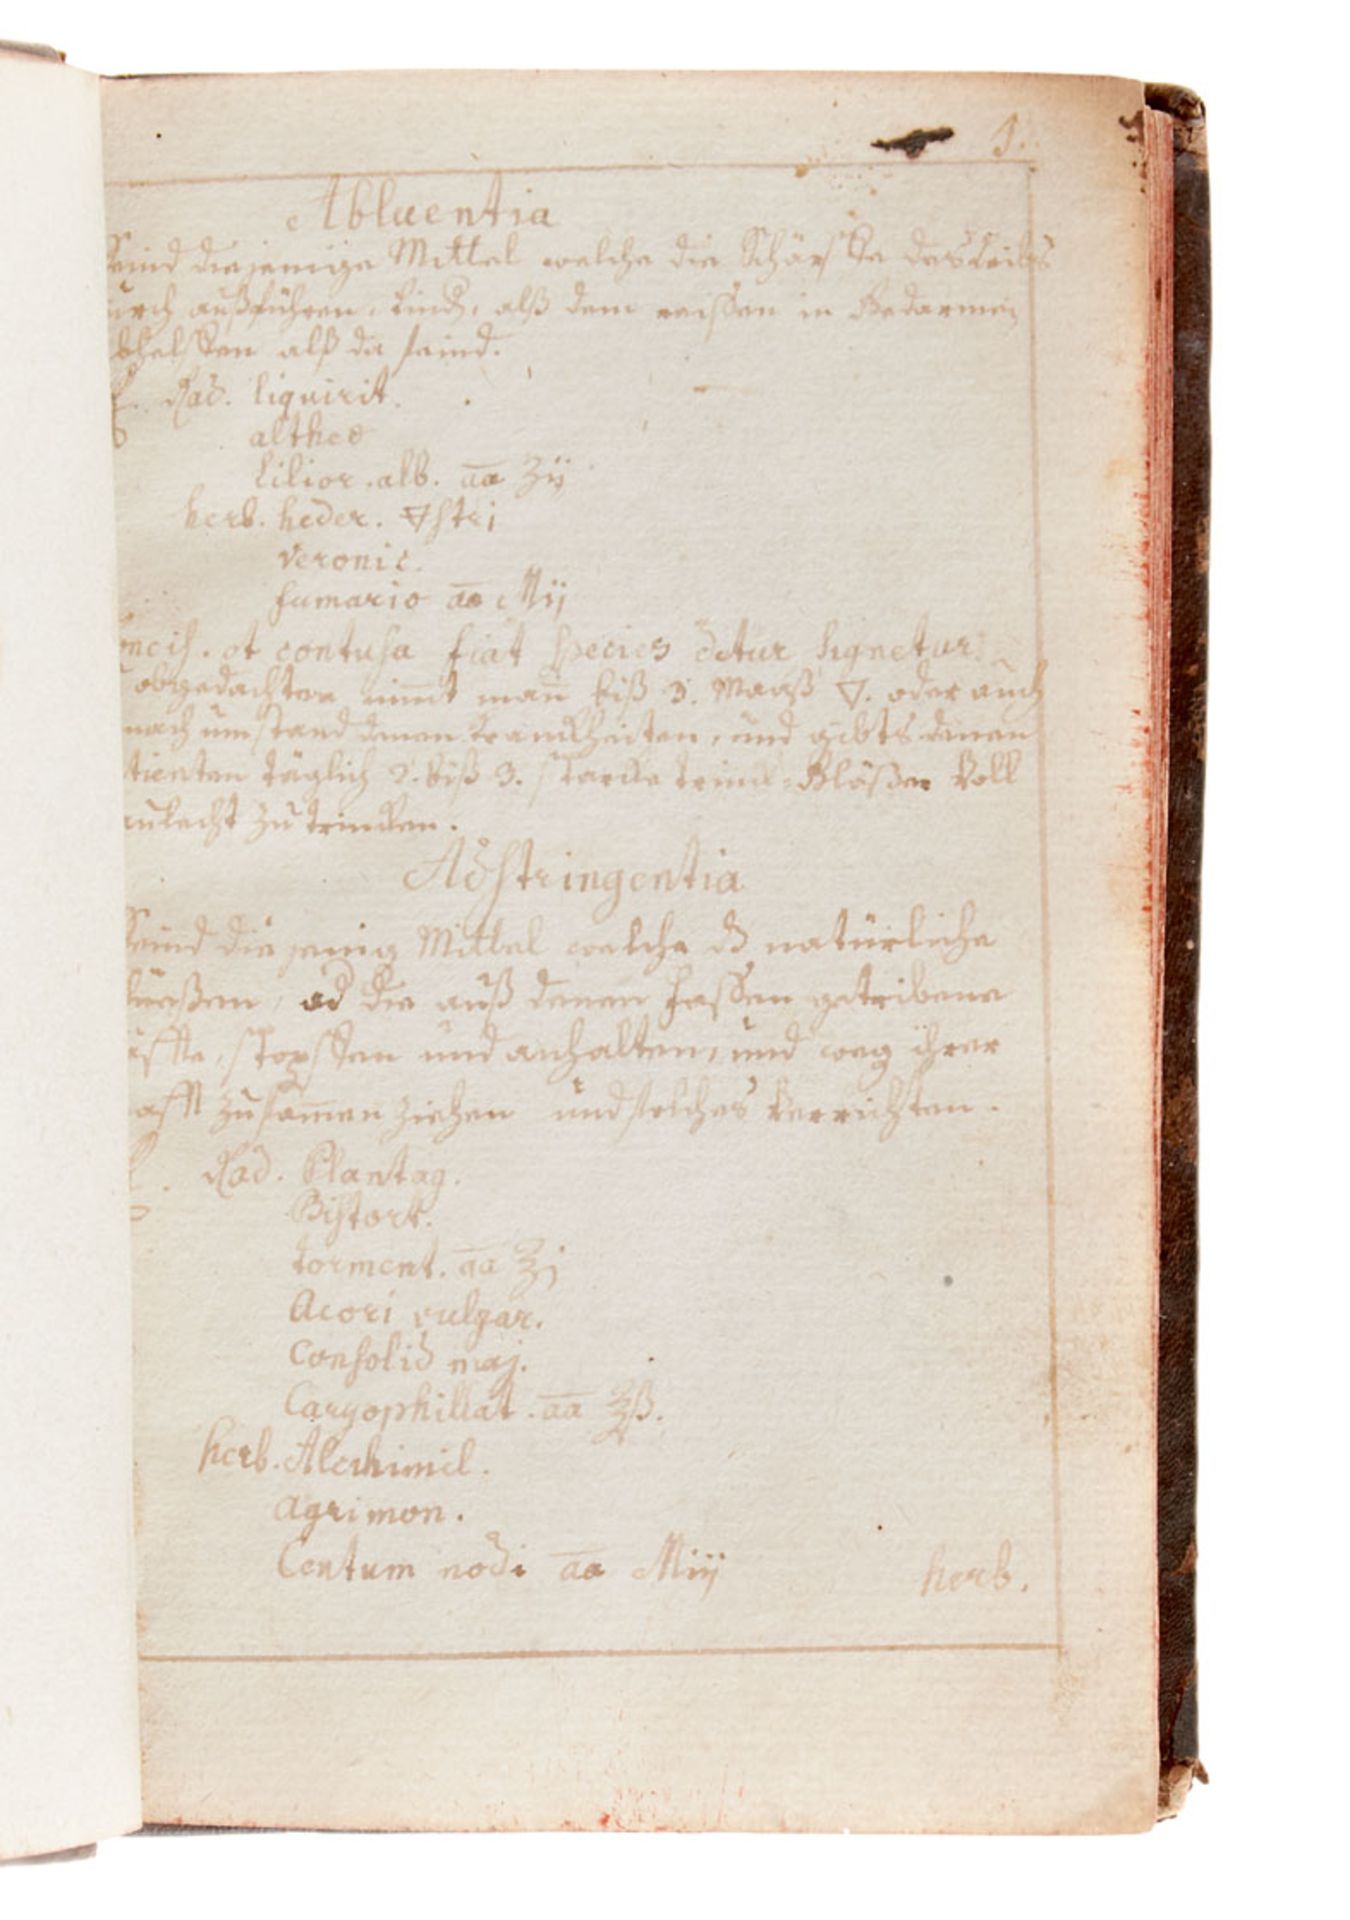 1.
Abluentia
Seind diejenige Mittel welche die Schärffe des Leibs
durch außführen, Lind, alß dem reissen in Gedärmen
abhelffen alß da seind.
Rad. liquirit.
altheo
Lilior. alb. āā ʒij
herb. heder. ▽stri
veronic.
fumario āā Mij
Concis. et contusa fiat species detur signetur.
obgedachten nimmt man biß 3. Maaß ▽. oder auch
nach umstand denen Kranckheiten, und gibts denen
tienten täglich 2. biß 3. starcke trinck=Gläßer voll
zu trincken.
Adstringentia
Seind die jenig Mittel welche d natürliche
od die auß denen fassen getribene
stopffen und anhalten, und weg ihrer
afft zusammen ziehen und solches verrichten.
Rad. Plantag.
Bistort.
torment. āā ʒj
Acori vulgar.
Consolid maj.
Caryophillat. āā ℥ß.
herb. Alchimil.
Agrimon.
Centum nodi āā Miij
herb.